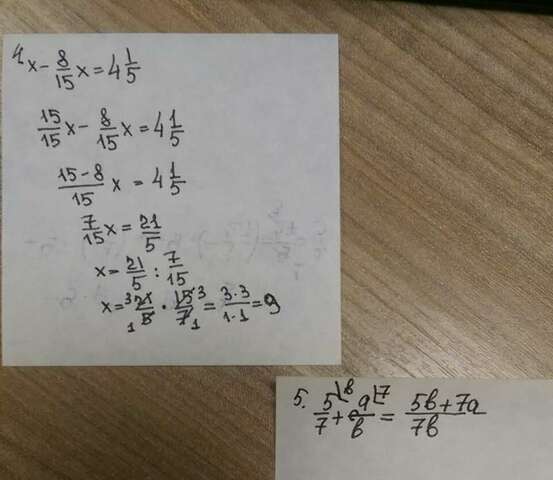 4. x - 8/15 x = 4 1/5
15/15 x - 8/15 x = 4 1/5
(15-8)/15 x = 4 1/5
7/15 x = 21/5
x = 21/5 : 7/15
x = ³21/5₁ · 15³/7₁ = 3·3/1·1 = 9
5. 5⌊b/7 + a⌊7/b = (5b+7a)/7b